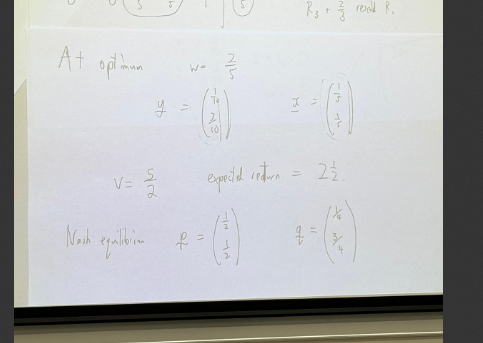 R₃ + 2/3
At optimum w = 2/5
y = (1/10 3/10) x = (1/5 1/5)
V = 5/2 expected return = 2 1/2
Nash equilibrium p = (1/2 1/2) q = (1/4 3/4)